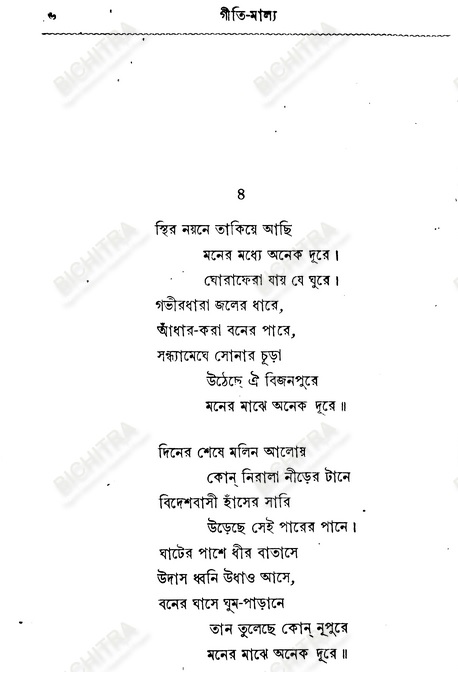 ৬
গীতি-মাল্য
৪
স্থির নয়নে তাকিয়ে আছি
মনের মধ্যে অনেক দূরে।
ঘোরাফেরা যায় যে ঘুরে।
গভীরধারা জলের ধারে,
আঁধার-করা বনের পারে,
সন্ধ্যামেঘে সোনার চূড়া
উঠেছে ঐ বিজনপুরে
মনের মাঝে অনেক দূরে॥
দিনের শেষে মলিন আলোয়
কোন্ নিরালা নীড়ের টানে
বিদেশবাসী হাঁসের সারি
উড়েছে সেই পারের পানে।
ঘাটের পাশে ধীর বাতাসে
উদাস ধ্বনি উধাও আসে,
বনের ঘাসে ঘুম-পাড়ানে
তান তুলেছে কোন্ নূপুরে
মনের মাঝে অনেক দূরে॥
BICHITRA
BICHITRA
BICHITRA
BICHITRA
BICHITRA
BICHITRA
BICHITRA
BICHITRA